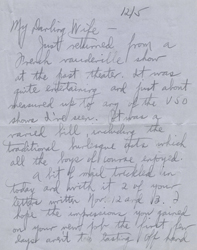 12/5
My Darling Wife —
Just returned from a
French vaudeville show
at the post theater. It was
quite entertaining and just about
measured up to any of the USO
shows I've seen. It was a
varied bill, including the
traditional burlesque acts which
all the boys of course enjoyed.
A bit of mail trickled in
today and with it 2 of your
letters written Nov. 12 and
hope the impressions you gained
on your new job the first few
days won't